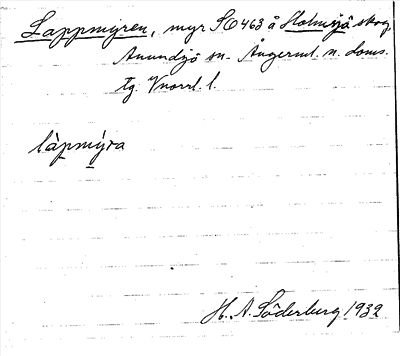 Lappmyren, myr SO 463 å Holmsjö skog,
Anundsjö sn. Ångerml. n. doms.
tg. Vnorrl. l.
làpmýra
H. A. Söderberg 1932